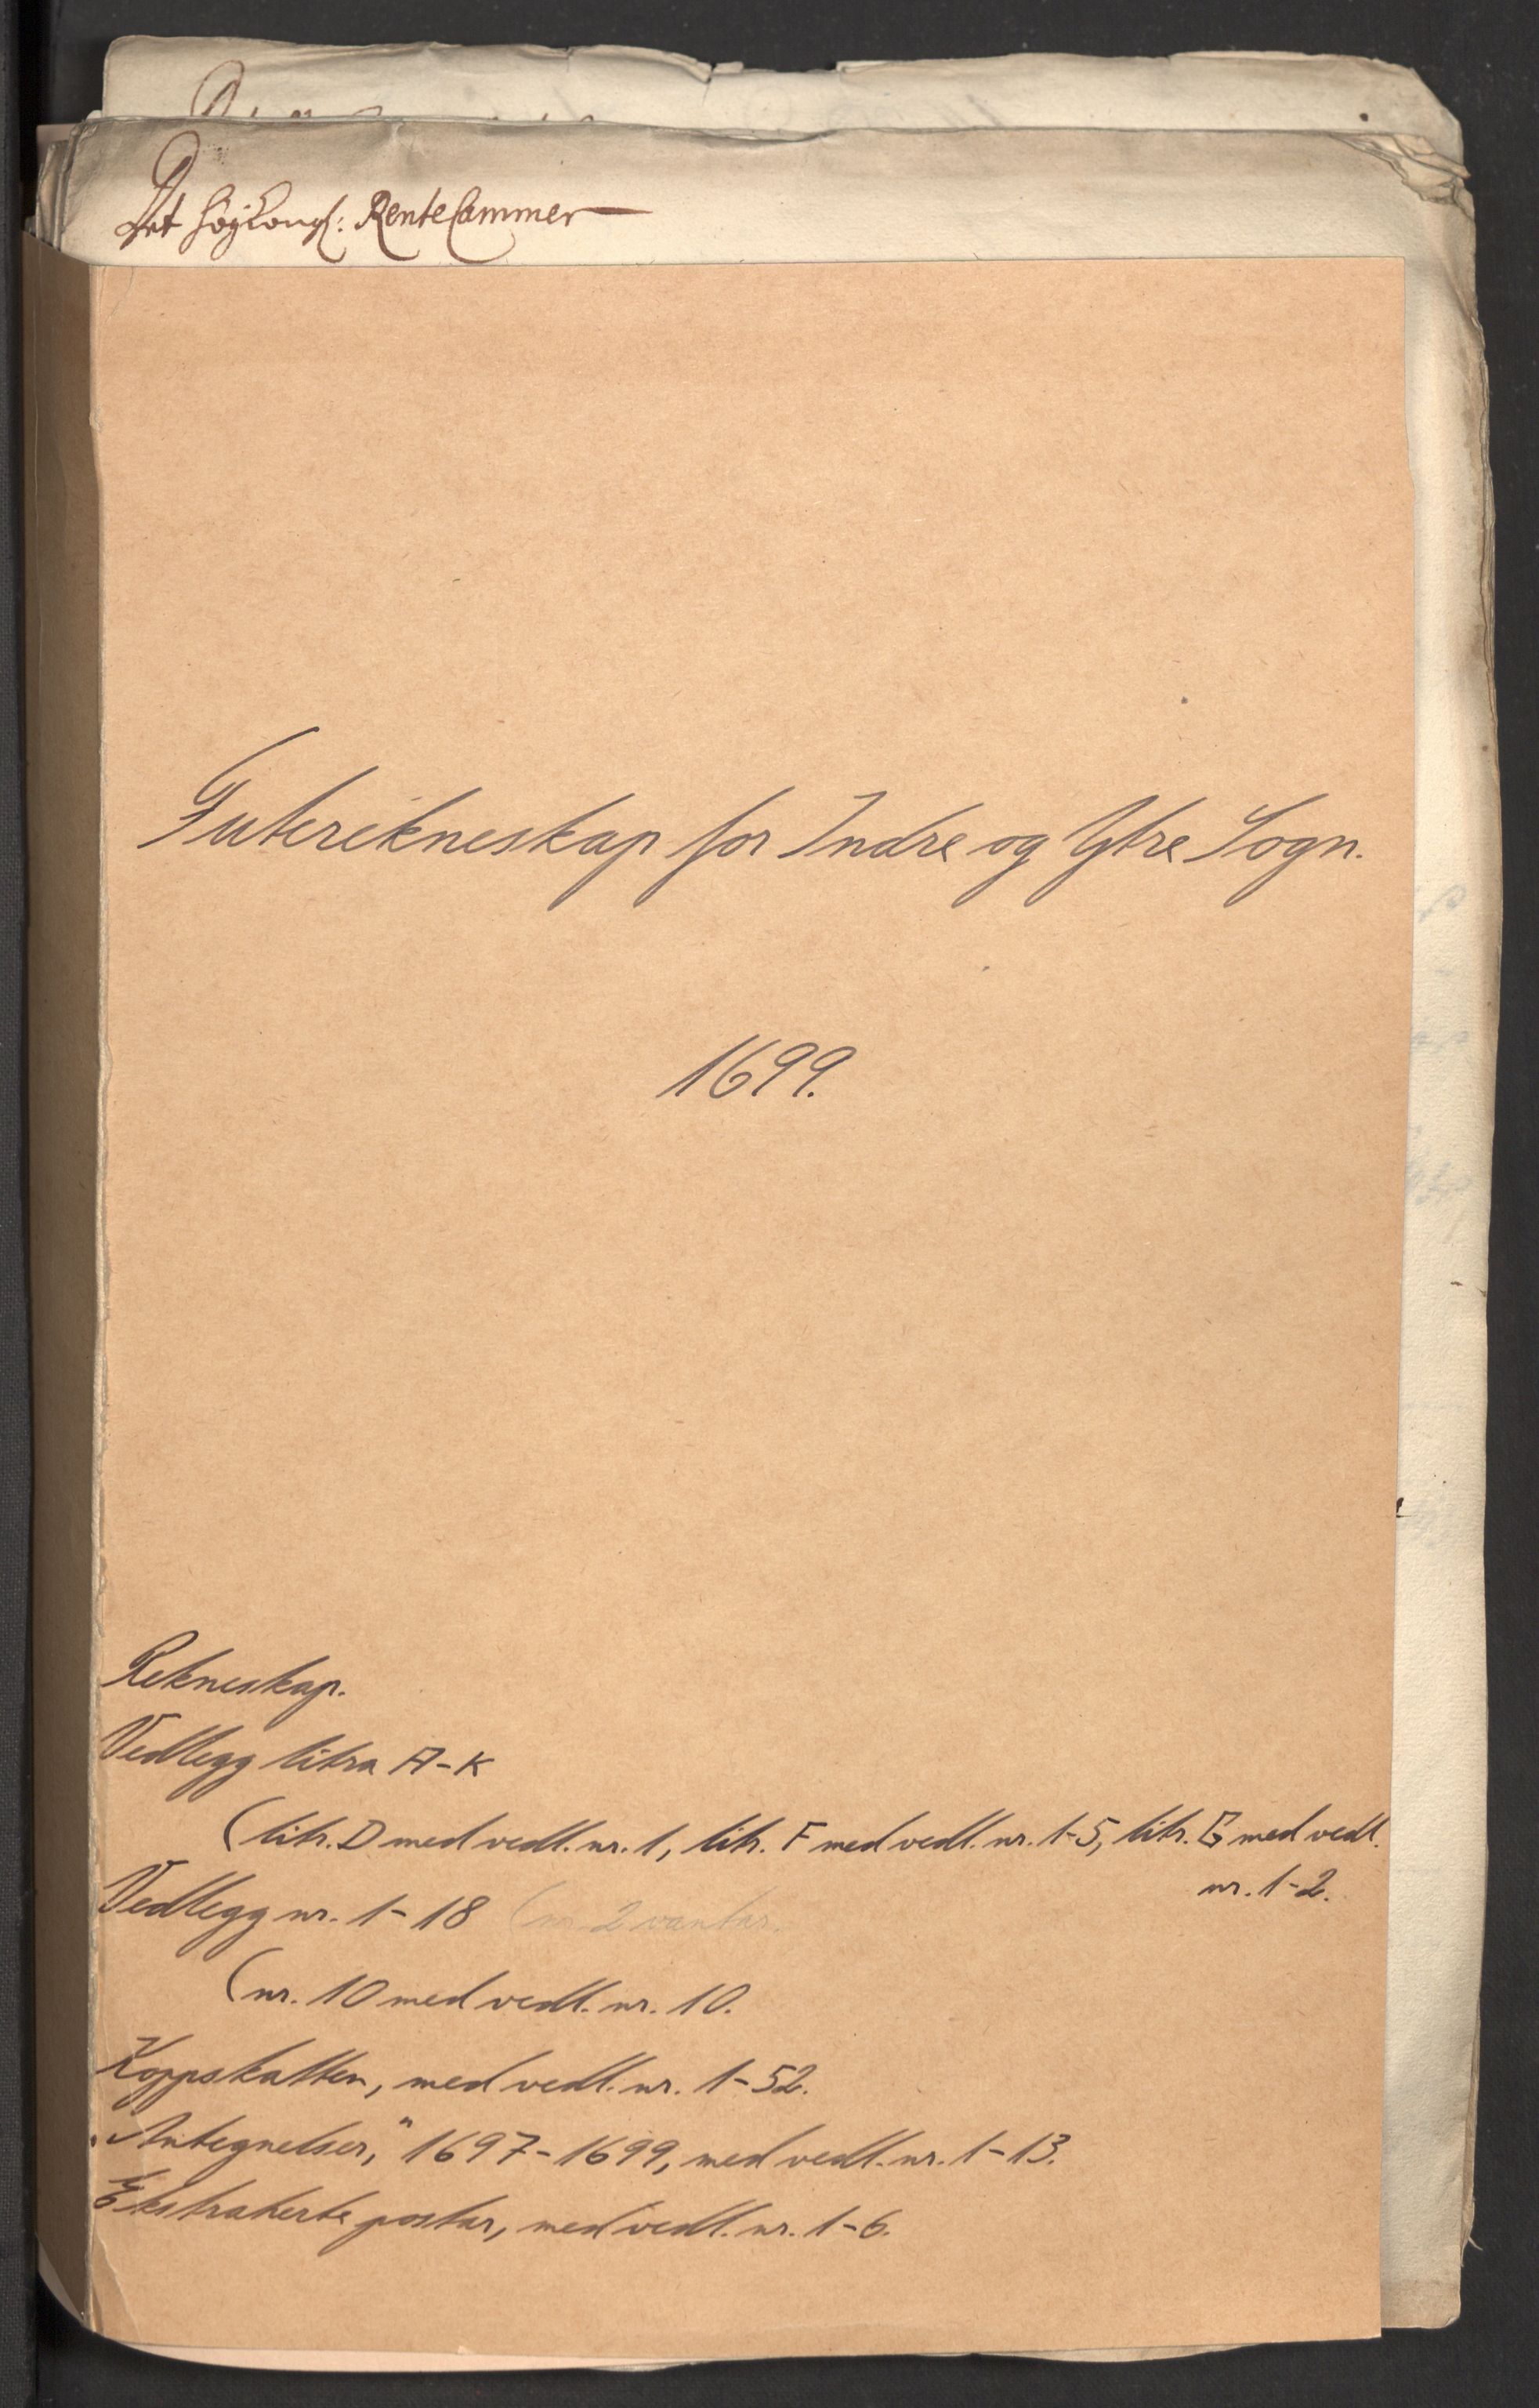 Det høyKongl: RenteCammer
Futerekneskap for Indre og Ytre Sogn.
1699.
Rekneskap.
Vedlegg litra A-K
(litr. D med vedl. nr. 1, litr. F med vedl. nr. 1-5, litr. G med vedl.
nr. 1-2.
Vedlegg nr. 1-18 (nr. 2 vantar.
(nr. 10 med vedl. nr. 10.
Koppskatten, med vedl. nr. 1-52.
„Antegnelser," 1697-1699, med vedl. nr. 1-13.
Ekstraherte postar, med vedl. nr. 1-6.